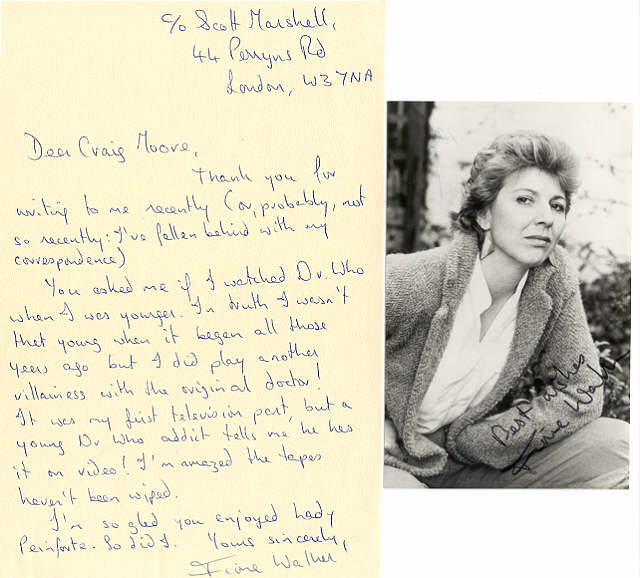 c/o Scott Marshall,
44 Perryns Rd
London, W3 7NA
Dear Craig Moore,
Thank you for
writing to me recently (or, probably, not
so recently: I've fallen behind with my
correspondence)
You asked me if I watched Dr. Who
when I was younger. In truth I wasn't
that young when it began all those
years ago but I did play another
villainess with the original doctor!
It was my first television part, but a
young Dr Who addict tells me he has
it on video! I'm amazed the tapes
haven't been wiped.
I'm so glad you enjoyed Lady
Peinforte. So did I. Yours sincerely,
Fiona Walker
Best wishes
Fiona Walker